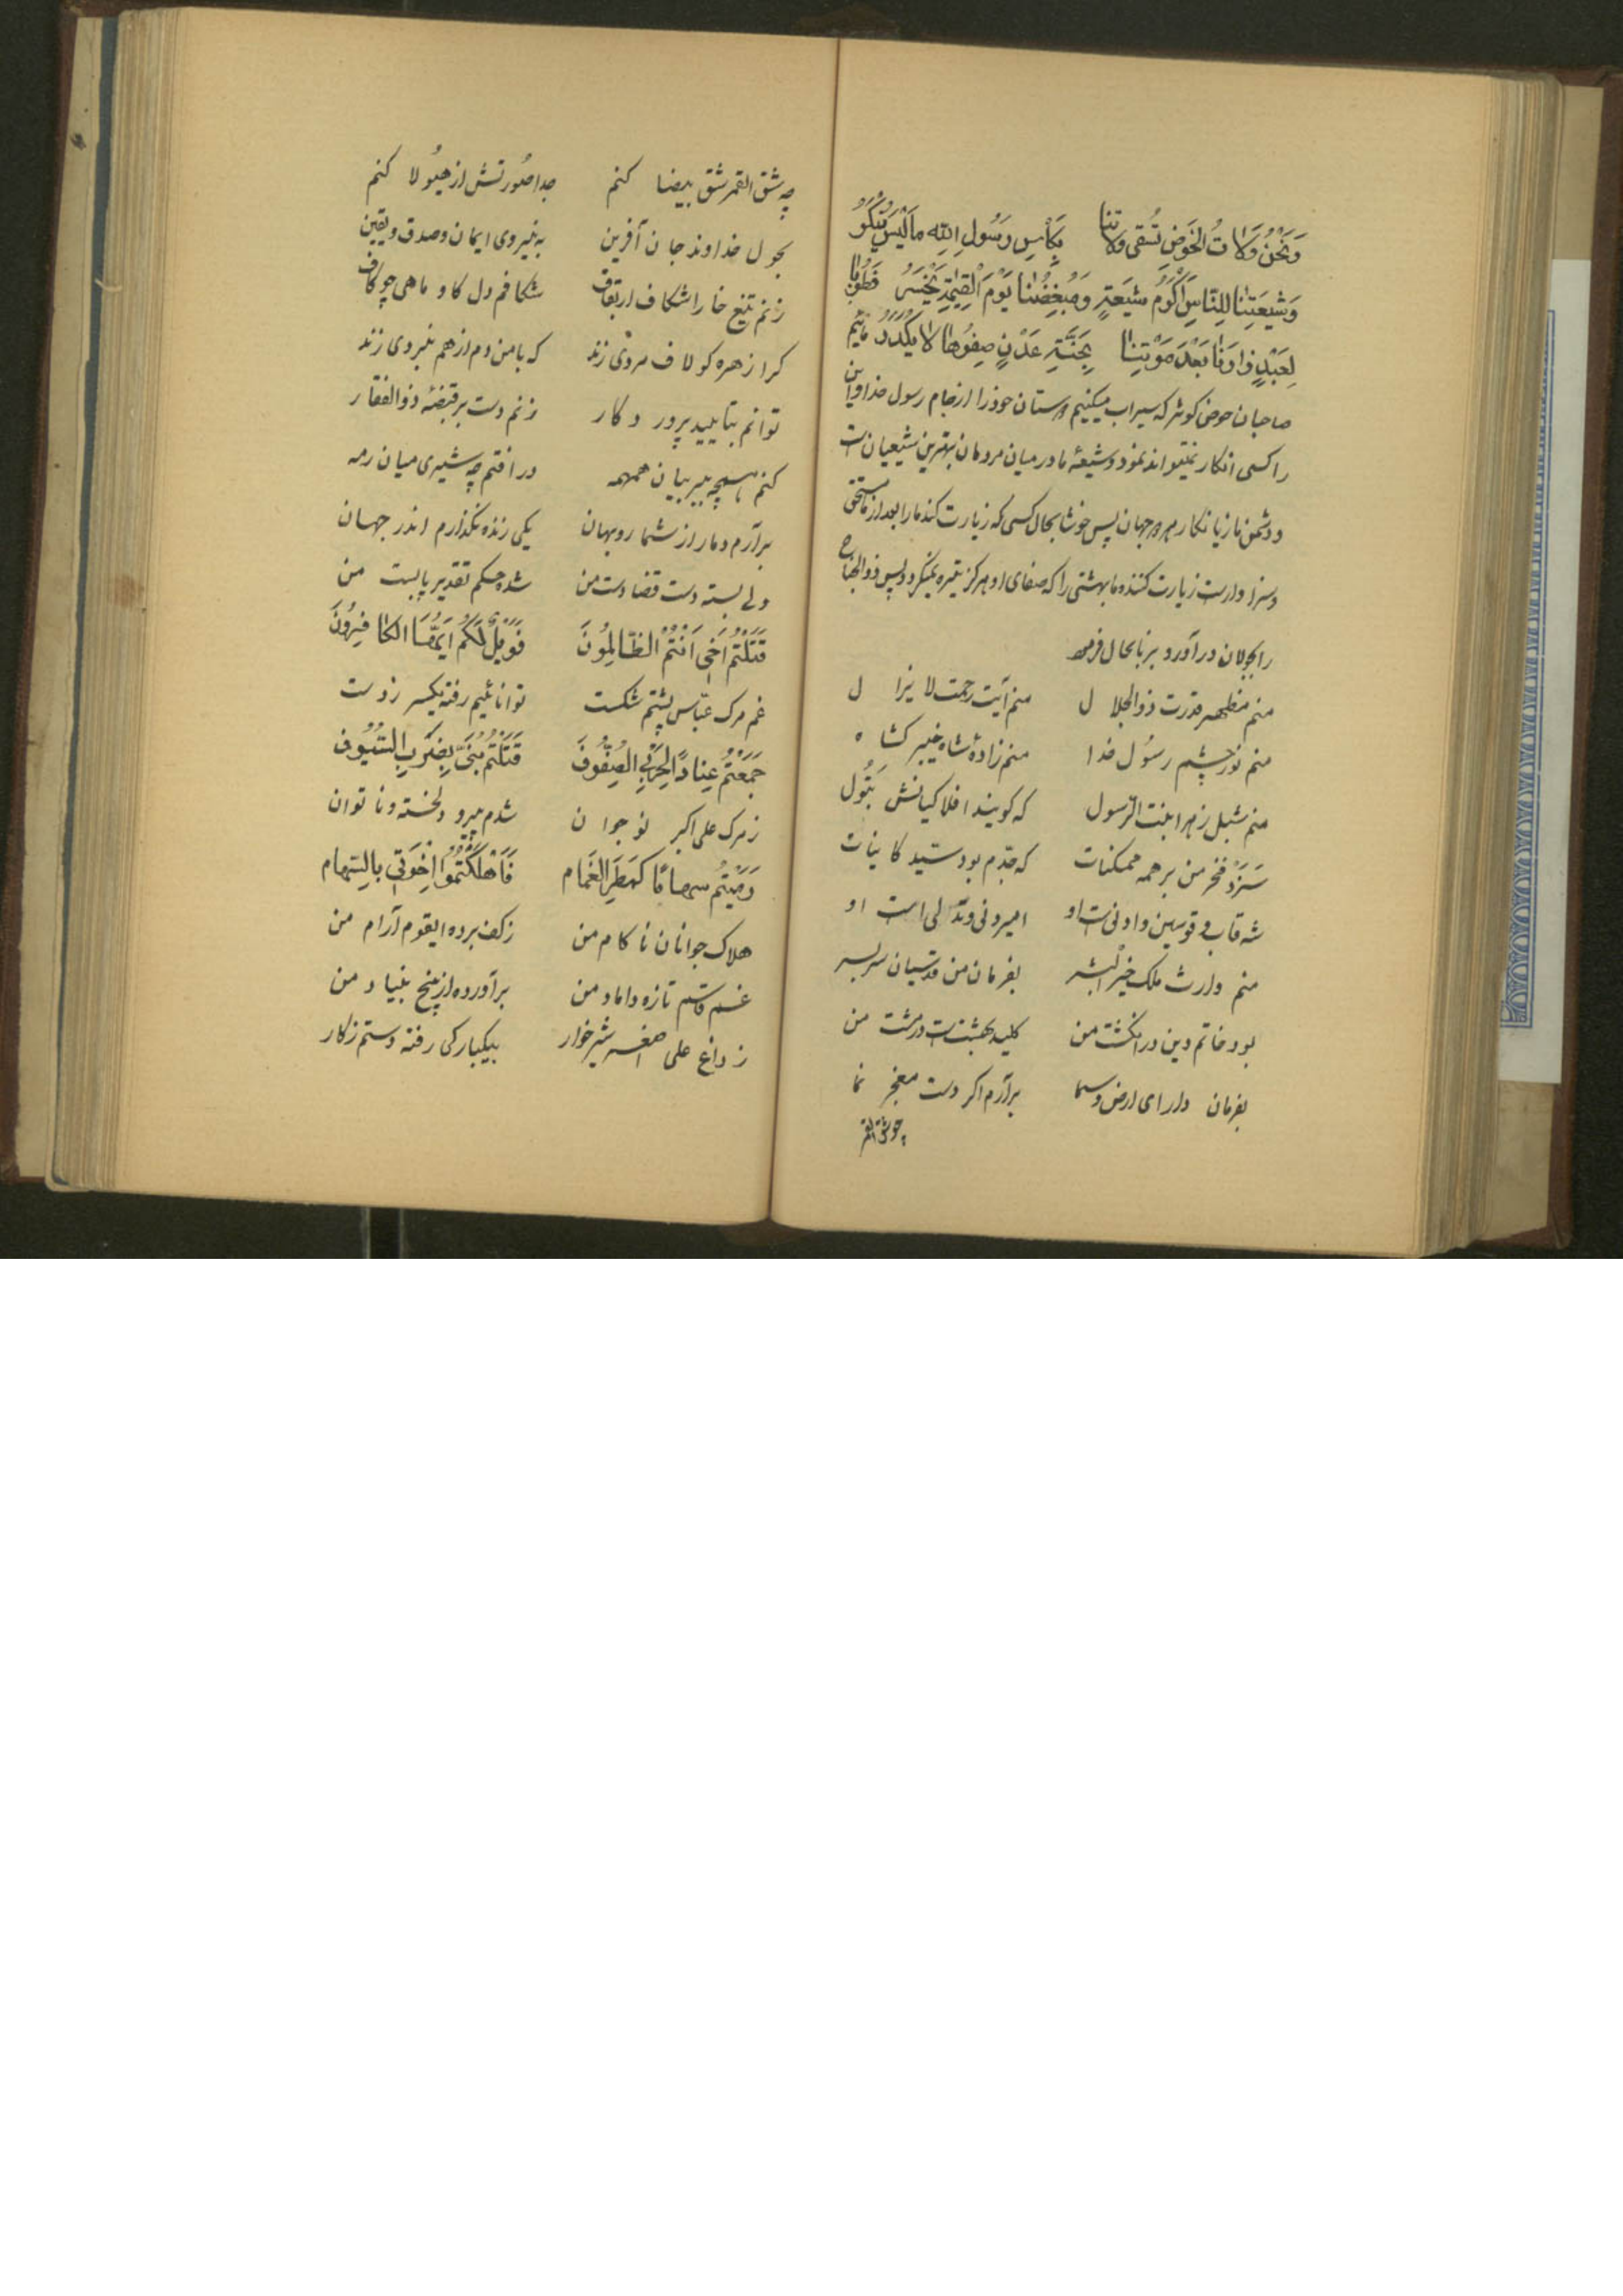 وَنَحْنُ وُلَاتُ الْحَوْضِ نُسْقِی وُلَاتَنَا بِکَأْسِ رَسُولِ اللّهِ مَا لَیْسَ یُنْکَرُ
وَشیعَتُنَا لِلنَّاسِ اَکْرَمُ شیعَةٍ وَمُبْغِضُنَا یَوْمَ الْقِیٰمَةِ یَخْسَرُ فَطُوبٰا
لِعَبْدٍ زَارَنَا بَعْدَ مَوْتِنَا بِجَنَّةِ عَدْنٍ صِفْوُهَا لَا یُکَدَّرُ مائیم
صاحبان حوض کوثر که سیراب میکنیم دوستان خود را از جام رسول خدا و این
را کسی انکار نمیتواند نمود و شیعهٔ ما در میان مردمان بهترین شیعیان است
و دشمن ما زیانکار هر دو جهان پس خوشا بحال کسی که زیارت کند ما را بعد از ما مستحق
و سزاوار است زیارت کننده ما بهشتی را که صفای او هرگز تیره نمیگردد پس ذوالجناح
را بجولان در آورد و بزبانحال فرمود
منم مظهر قدرت ذوالجلال منم آیت رحمت لا یزال
منم نور چشم رسُول خدا منم زادهٔ شاه خیبر کشا
منم شبل زهرا بنت الرّسول که کویند افلاکیانش بَتُول
سَزَد فخر من بر همه ممکنات که جدّم بود سیّد کاینات
شه قاب و قوسین و ادنی است او امیر دنی و تدلّی است او
منم وارث ملک خیر البشر بفرمان من قدسیان سربسر
بود خاتم دین در انکشت من کلید بهشت است در مشت من
بفرمان دارای ارض و سما برآرم اکر دست معجز نما
چو شق القمر
چه شق القمر شق بیضا کنم جدا صُورتش از هیُولا کنم
بحول خداوند جان آفرین به نیروی ایمان و صدق و یقین
زنم تیغ خارا شکاف ار بقاف شکافم دل کاو و ماهی چو کاف
کرا زهره کو لاف مردی زند که با من دم از هم نبردی زند
توانم بتایید پرورد کار زنم دست بر قبضهٔ ذوالفقار
کنم همچه ببر بیان همهمه در افتم چه شیری میان رمه
برآرم دمار از شما روبهان یکی زنده نکذارم اندر جهان
ولی بسته دست قضا دست من شده حکم تقدیر پابست من
قَتَلْتُمْ اَخِی اَنْتُمُ الظّالِمُونَ فَوَیْلٌ لَکُمْ اَیُّهَا الکافِرُونَ
غم مرک عبّاس پشتم شکست توانائیم رفته یکسر ز دست
جَمَعْتُمْ عِنادًا لِحَرْبِی الصُفُوفَ قَتَلْتُمْ بُنَیَّ بِضَرْبِ السّیُوف
ز مرک علی اکبر نوجوان شدم پیر و دلخسته و ناتوان
رَمَیْتُم سِهامًا کَمَطَرِ الْغَمَام فَاَهْلَکْتُمُوا اِخْوَتی بِالسّهام
هلاک جوانان ناکام من ز کف برده ایقوم آرام من
غم قاسم تازه داماد من برآورده از بیخ بنیاد من
ز داغ علی اصغر شیر خوار بیکبارکی رفته دستم ز کار